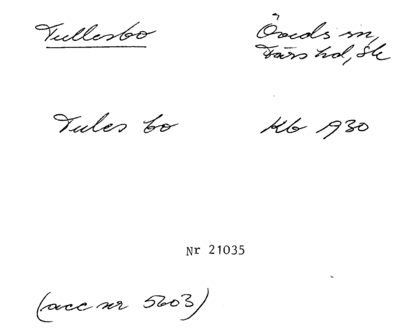 Tullesbo
Öveds sn,
Färs hd, Sk
Tules bo Kb 1930
Nr 21035
(acc nr 5603)